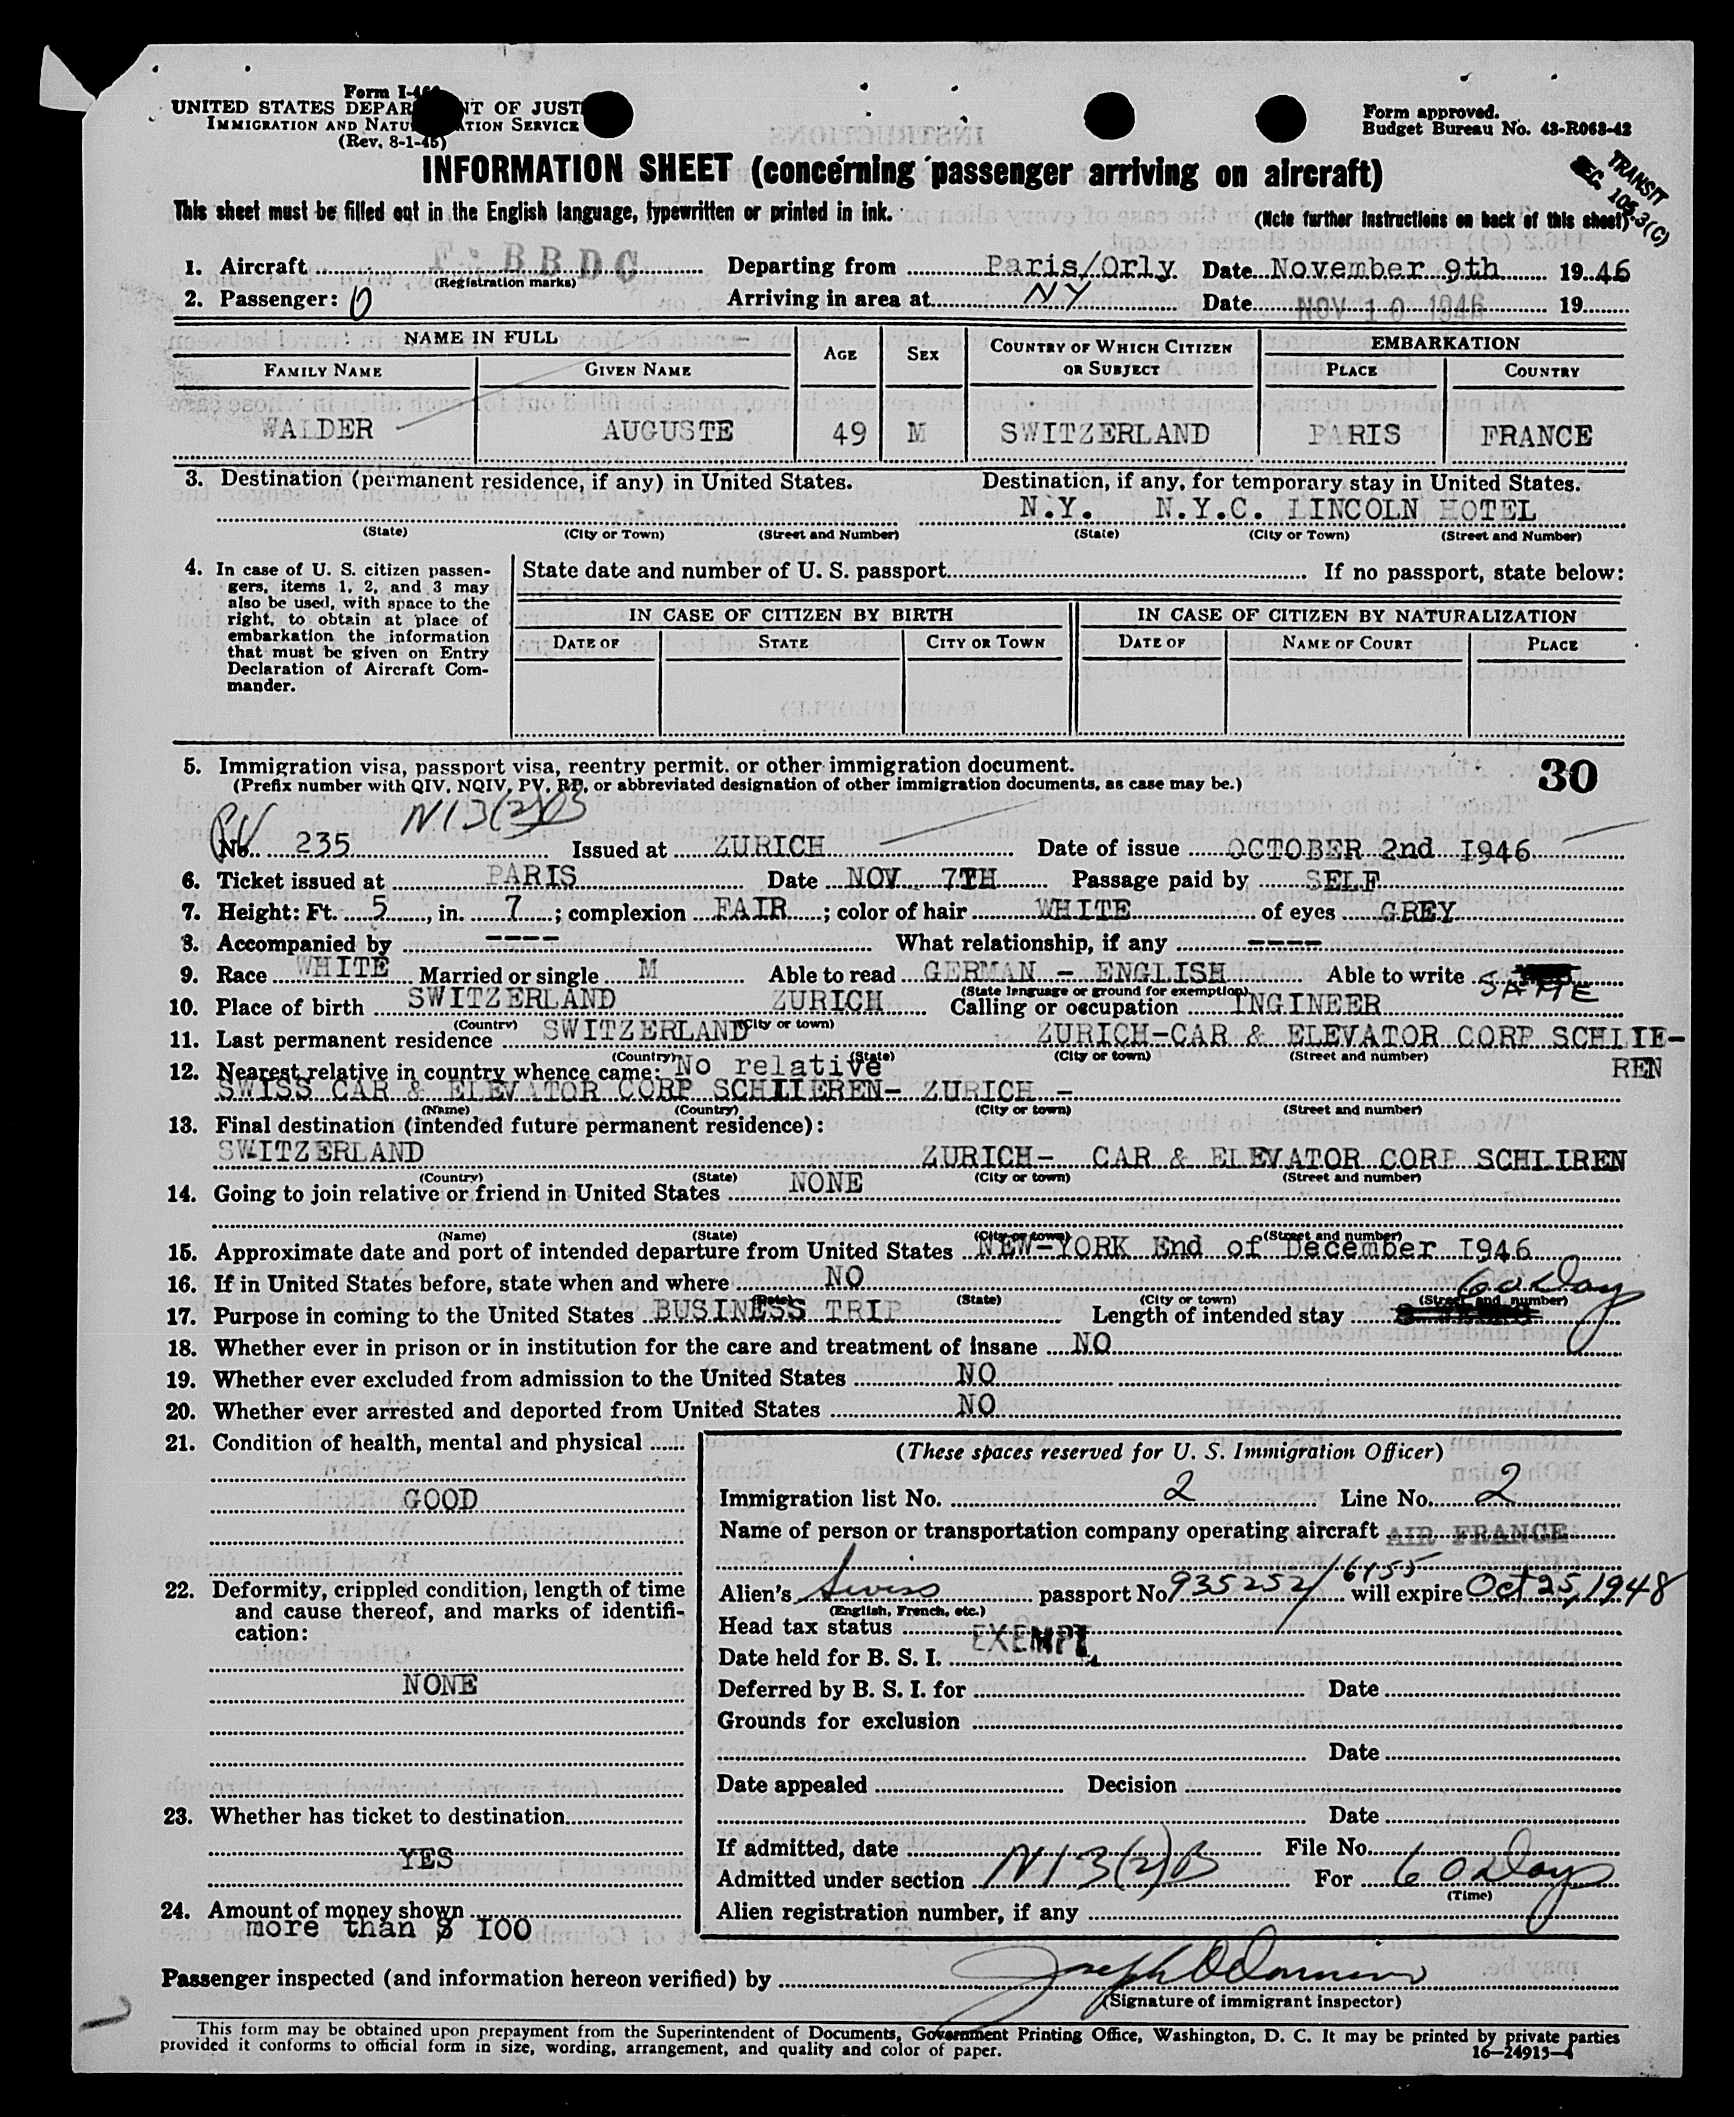 Form I-466
UNITED STATES DEPARTMENT OF JUSTICE
IMMIGRATION AND NATURALIZATION SERVICE
(Rev. 8-1-45)
Form approved.
Budget Bureau No. 43-R063-42
INFORMATION SHEET (concerning passenger arriving on aircraft)
TRANSIT
SEC. 105.3(C)
This sheet must be filled out in the English language, typewritten or printed in ink.
(Note further instructions on back of this sheet)
1. Aircraft F-BBDC Departing from Paris/Orly Date November 9th 1946
(Registration marks)
2. Passenger: Arriving in area at NY Date NOV 10 1946 19
NAME IN FULL AGE SEX COUNTRY OF WHICH CITIZEN OR SUBJECT EMBARKATION
FAMILY NAME GIVEN NAME PLACE COUNTRY
WALDER AUGUSTE 49 M SWITZERLAND PARIS FRANCE
3. Destination (permanent residence, if any) in United States. Destination, if any, for temporary stay in United States.
N.Y. N.Y.C. LINCOLN HOTEL
(State) (City or Town) (Street and Number) (State) (City or Town) (Street and Number)
4. In case of U. S. citizen passen-
gers, items 1, 2, and 3 may
also be used, with space to the
right, to obtain at place of
embarkation the information
that must be given on Entry
Declaration of Aircraft Com-
mander.
State date and number of U. S. passport If no passport, state below:
IN CASE OF CITIZEN BY BIRTH IN CASE OF CITIZEN BY NATURALIZATION
DATE OF STATE CITY OR TOWN DATE OF NAME OF COURT PLACE
5. Immigration visa, passport visa, reentry permit, or other immigration document. 30
(Prefix number with QIV, NQIV, PV, RP, or abbreviated designation of other immigration documents, as case may be.)
PV N13(2)B
No. 235 Issued at ZURICH Date of issue OCTOBER 2nd I946
6. Ticket issued at PARIS Date NOV. 7TH Passage paid by SELF
7. Height: Ft. 5, in. 7; complexion FAIR; color of hair WHITE of eyes GREY
8. Accompanied by ---- What relationship, if any ----
9. Race WHITE Married or single M Able to read GERMAN - ENGLISH Able to write SAME
(State language or ground for exemption)
10. Place of birth SWITZERLAND ZURICH Calling or occupation INGINEER
(Country) (City or town)
11. Last permanent residence SWITZERLAND ZURICH-CAR & ELEVATOR CORP SCHLIE-
REN
(Country) (State) (City or town) (Street and number)
12. Nearest relative in country whence came: No relative
SWISS CAR & ELEVATOR CORP SCHLIEREN- ZURICH -
(Name) (Country) (City or town) (Street and number)
13. Final destination (intended future permanent residence):
SWITZERLAND ZURICH- CAR & ELEVATOR CORP SCHLIREN
(Country) (State) (City or town) (Street and number)
14. Going to join relative or friend in United States NONE
(Name) (State) (City or town) (Street and number)
15. Approximate date and port of intended departure from United States NEW-YORK End of December I946
16. If in United States before, state when and where NO
(Date) (State) (City or town) (Street and number)
17. Purpose in coming to the United States BUSINESS TRIP Length of intended stay 60 Day
18. Whether ever in prison or in institution for the care and treatment of insane NO
19. Whether ever excluded from admission to the United States NO
20. Whether ever arrested and deported from United States NO
21. Condition of health, mental and physical
GOOD
22. Deformity, crippled condition, length of time
and cause thereof, and marks of identifi-
cation:
NONE
23. Whether has ticket to destination
YES
24. Amount of money shown
more than $ I00
(These spaces reserved for U. S. Immigration Officer)
Immigration list No. 2 Line No. 2
Name of person or transportation company operating aircraft AIR FRANCE
Alien's Swiss passport No. 935252/6155 will expire Oct 25, 1948
(English, French, etc.)
Head tax status EXEMPT
Date held for B. S. I.
Deferred by B. S. I. for Date
Grounds for exclusion
Date
Date appealed Decision
Date
If admitted, date File No.
Admitted under section N13(2)B For 60 Day
(Time)
Alien registration number, if any
Passenger inspected (and information hereon verified) by
(Signature of immigrant inspector)
This form may be obtained upon prepayment from the Superintendent of Documents, Government Printing Office, Washington, D. C. It may be printed by private parties
provided it conforms to official form in size, wording, arrangement, and quality and color of paper.
16—24915-1